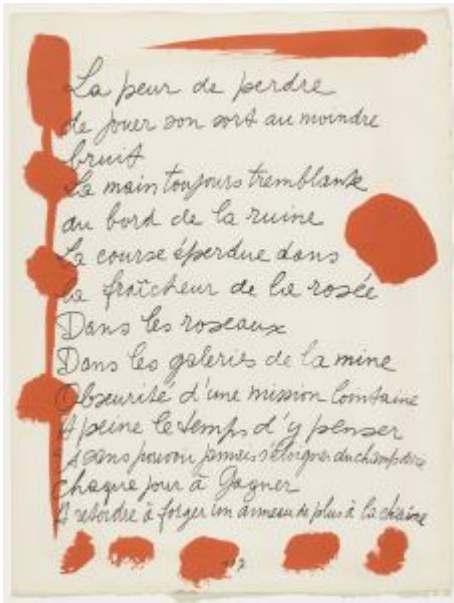 La peur de perdre
de jouer son sort au moindre
bruit
La main toujours tremblante
au bord de la ruine
La course éperdue dans
la fraîcheur de la rosée
Dans les roseaux
Dans les galeries de la mine
Obscurité d'une mission lointaine
A peine le temps d'y penser
sans pouvoir jamais s'éloigner du champ
chaque jour à Gagner
A retordre à forger un anneau de plus à la chaîne